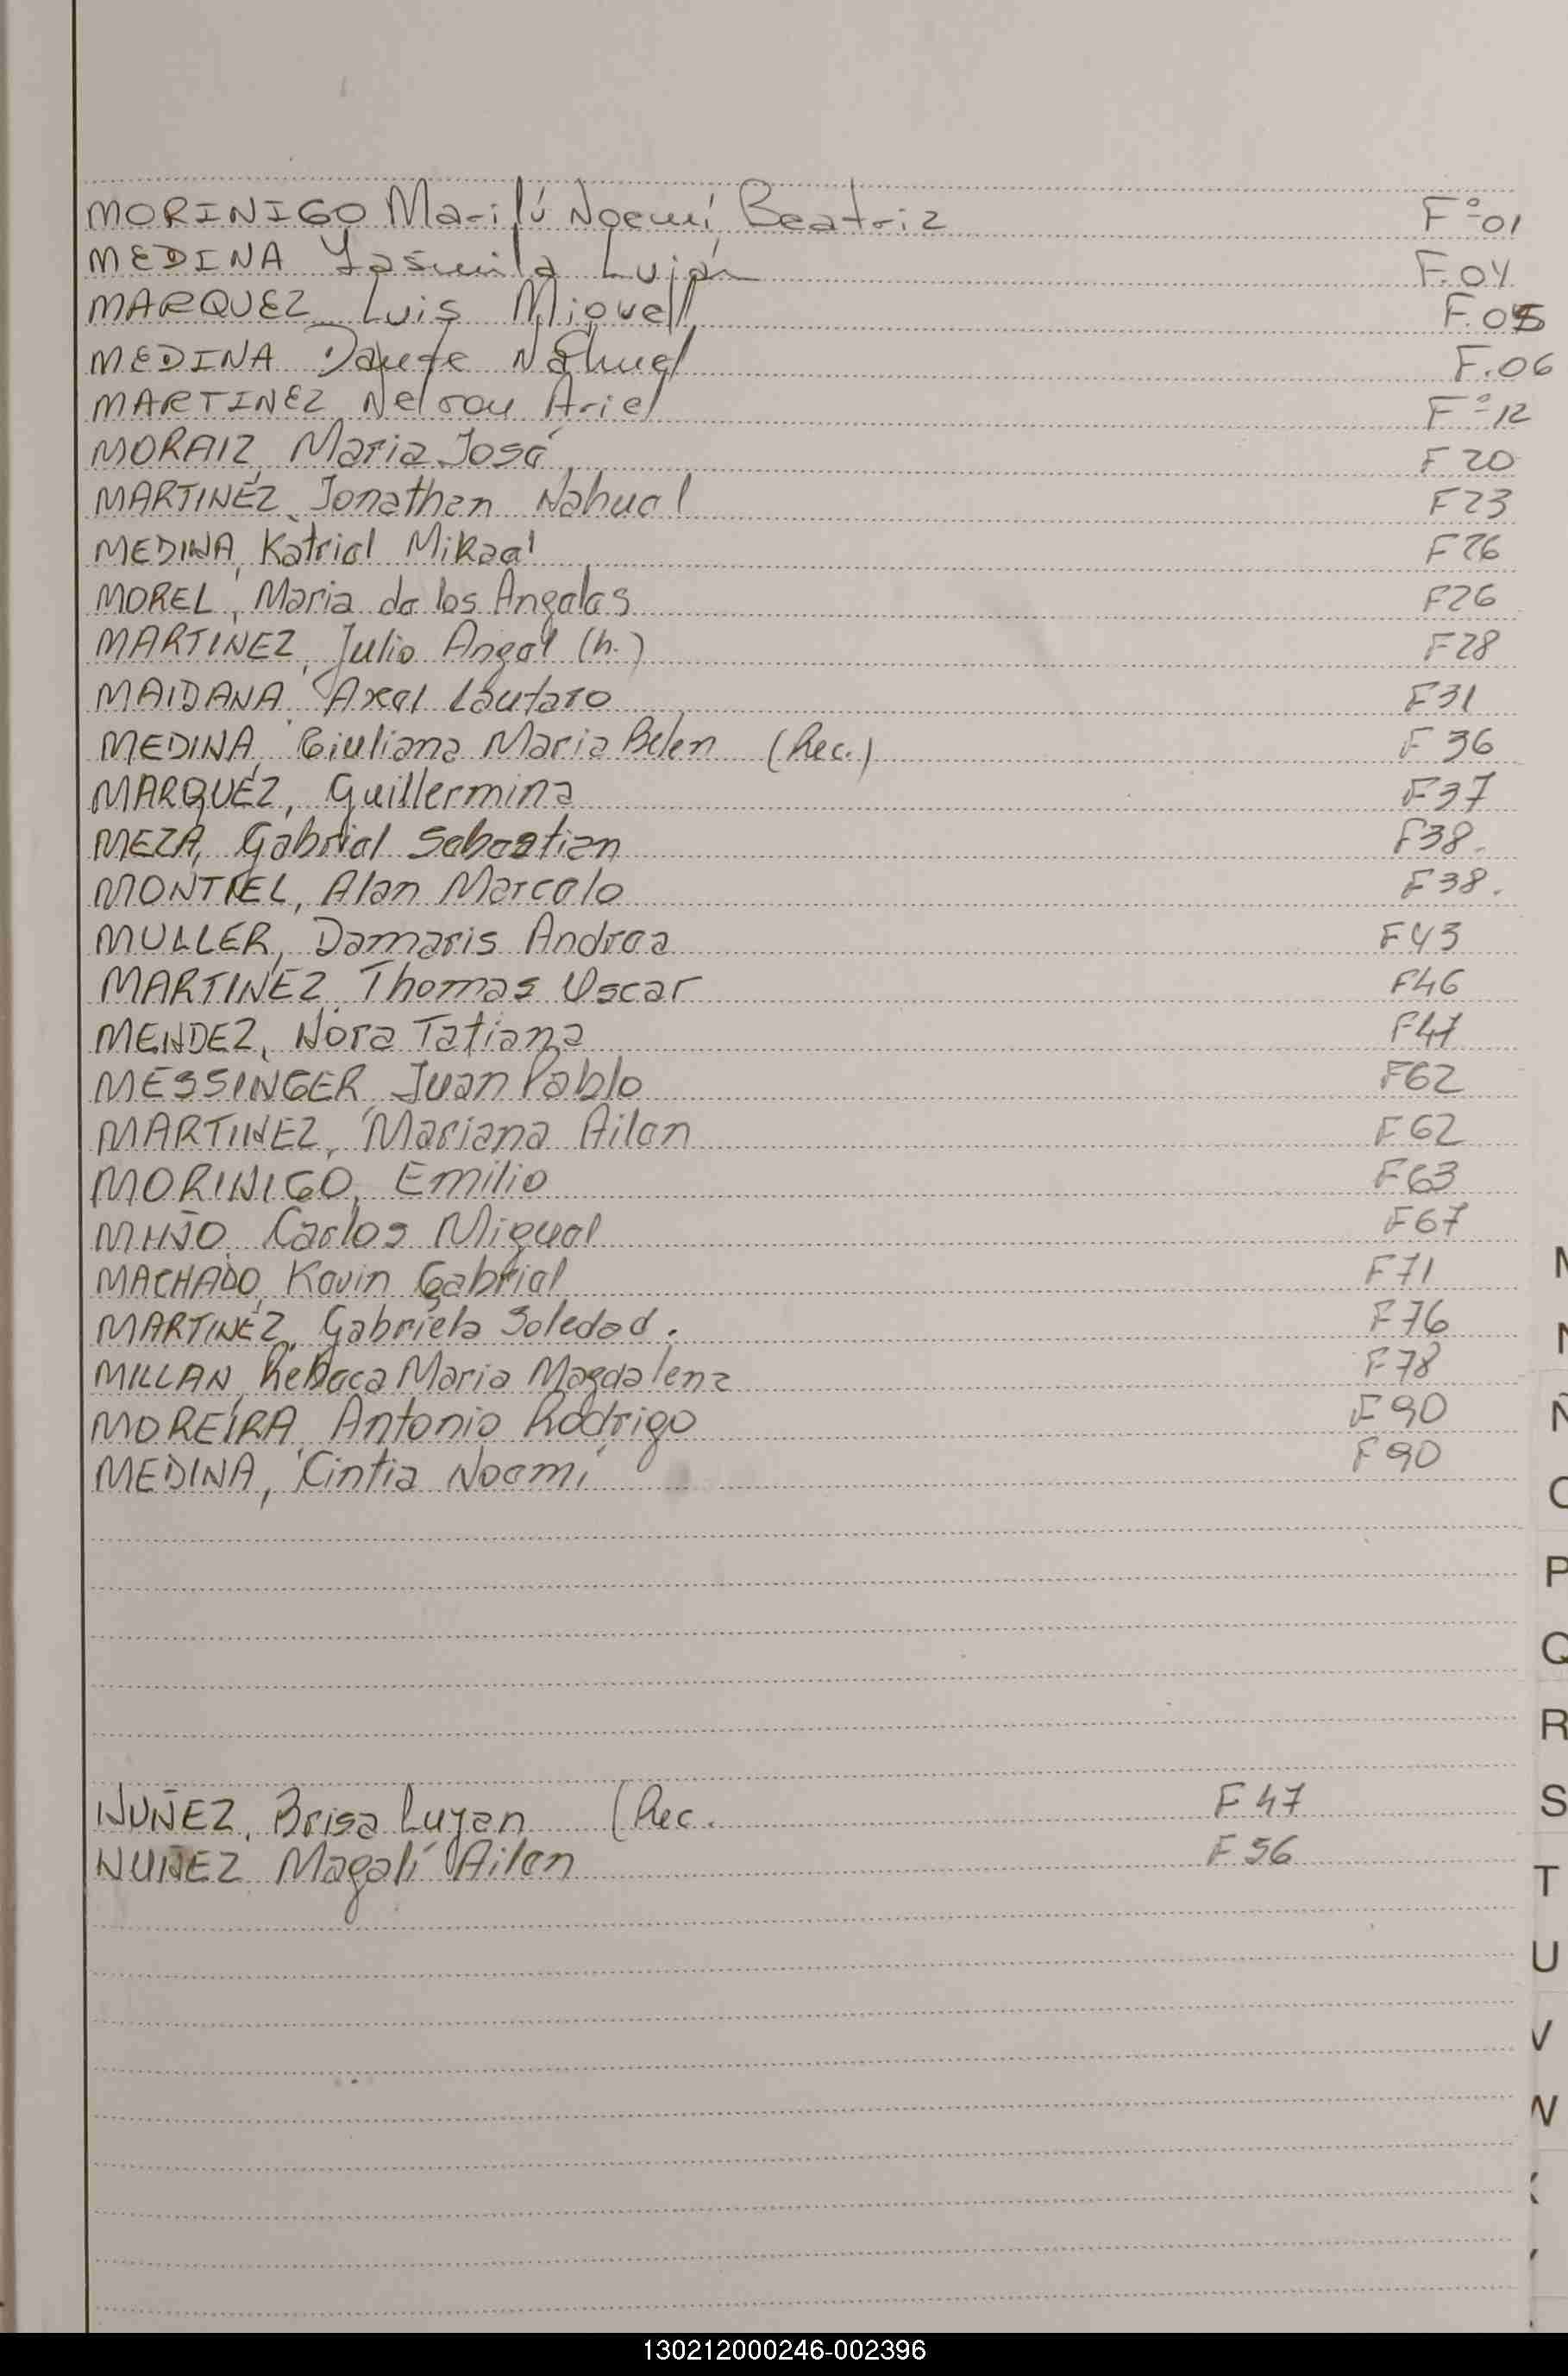 MORINIGO Marilú Noemí Beatriz F°01
MEDINA Yasmila Luján F.04
MARQUEZ Luis Miguel F.05
MEDINA Dante Nahuel F.06
MARTINEZ Nelson Ariel F°12
MORAIZ, Maria José F20
MARTINEZ, Jonathan Nahuel F23
MEDINA, Katriel Mikael F26
MOREL, Maria de los Angeles F26
MARTINEZ, Julio Angel (h.) F28
MAIDANA, Axel Lautaro F31
MEDINA, Giuliana Maria Belen (Rec.) F36
MARQUEZ, Guillermina F37
MEZA, Gabriel Sebastian F38.
MONTIEL, Alan Marcelo F38.
MULLER, Damaris Andrea F43
MARTINEZ Thomas Oscar F46
MENDEZ, Nora Tatiana F47
MESSINGER Juan Pablo F62
MARTINEZ, Mariana Ailen F62
MORINIGO, Emilio F63
MIÑO, Carlos Miguel F67
MACHADO, Kevin Gabriel F71
MARTINEZ, Gabriela Soledad. F76
MILLAN, Rebeca Maria Magdalena F78
MOREIRA, Antonio Rodrigo F90
MEDINA, Cintia Noemí F90
NUÑEZ, Brisa Luyan (Rec. F47
NUÑEZ Magalí Ailen F56
M
N
Ñ
O
P
Q
R
S
T
U
V
W
130212000246-002396